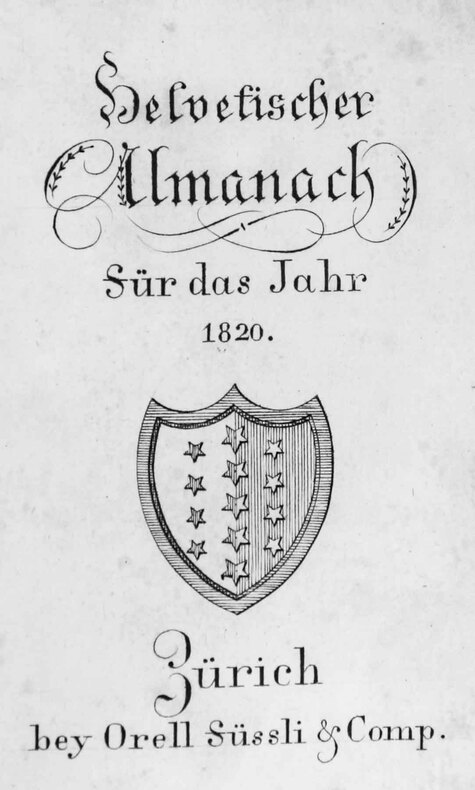 Helvetischer
Almanach
Für das Jahr
1820.
Zürich
bey Orell Füssli & Comp.